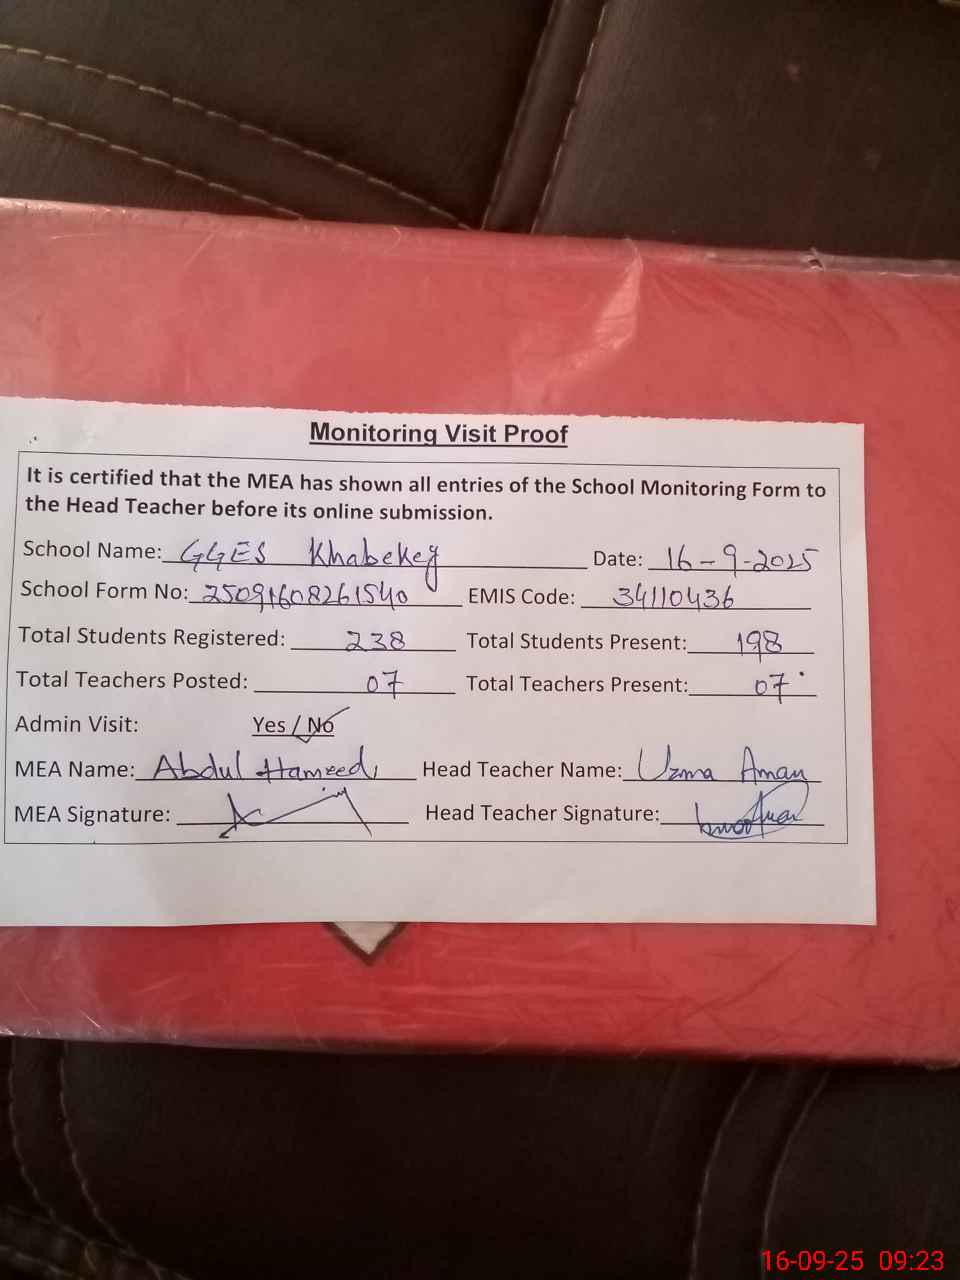 Monitoring Visit Proof
It is certified that the MEA has shown all entries of the School Monitoring Form to
the Head Teacher before its online submission.
School Name: GGES Khabekey Date: 16-9-2025
School Form No: 25091608261540 EMIS Code: 34110436
Total Students Registered: 238 Total Students Present: 198
Total Teachers Posted: 07 Total Teachers Present: 07
Admin Visit: Yes / No
MEA Name: Abdul Hameed Head Teacher Name: Uzma Aman
MEA Signature: Head Teacher Signature:
16-09-25 09:23